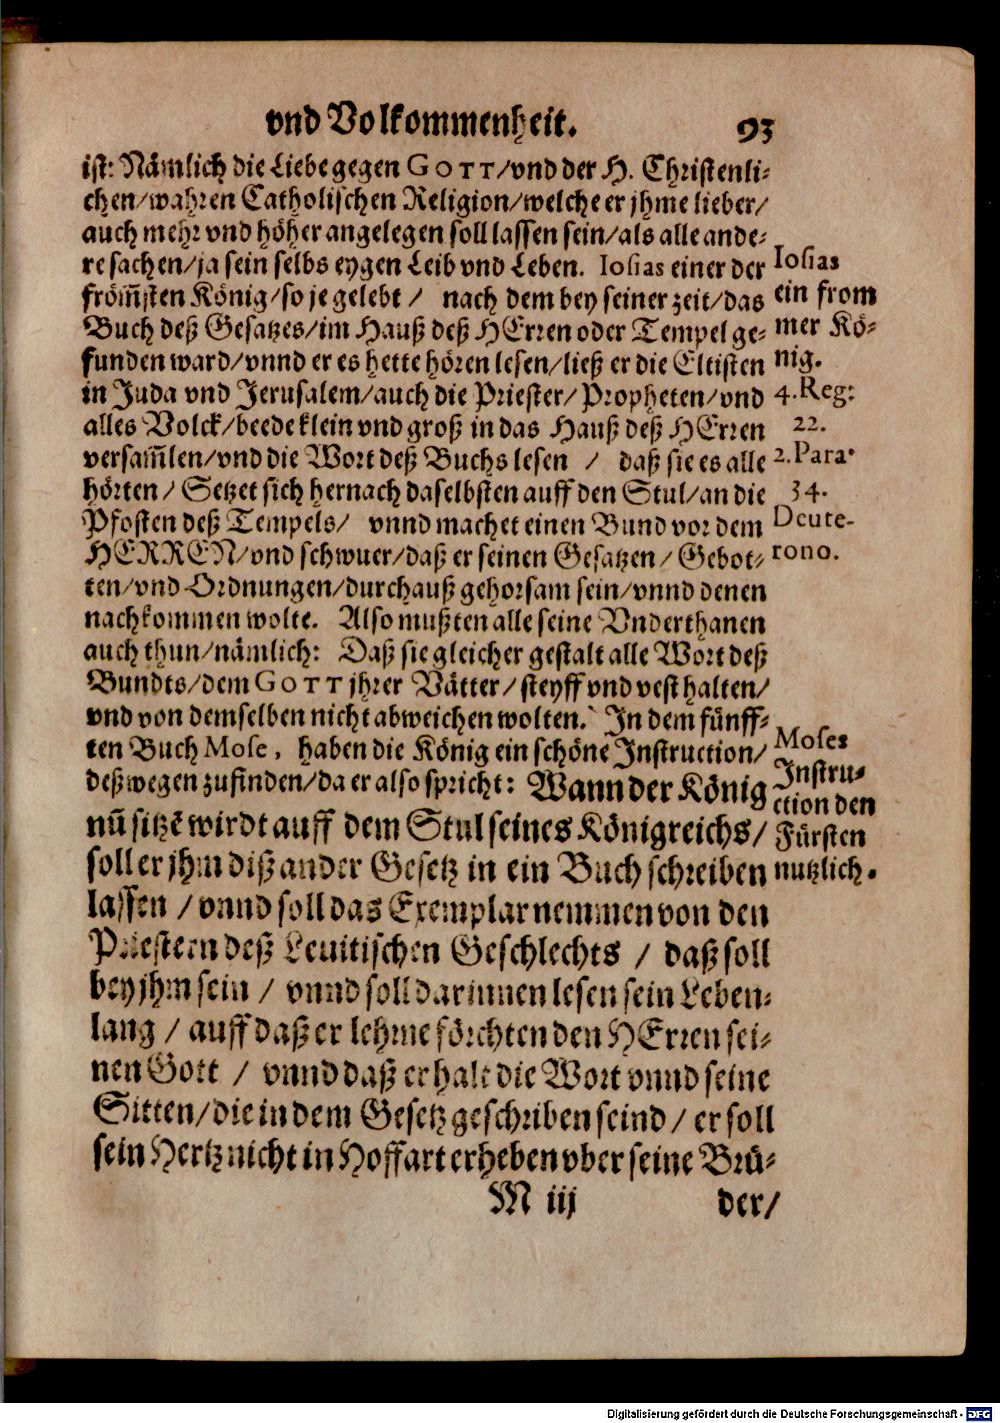 vnd Volkommenheit. 93
ist: Nämlich die Liebe gegen GOTT/vnd der H. Christenli-
chen/wahren Catholischen Religion/welche er jhme lieber/
auch mehr vnd höher angelegen soll lassen sein/als alle ande-
re sachen/ja sein selbs eygen Leib vnd Leben. Iosias einer der
frömsten König/so je gelebt / nach dem bey seiner zeit/das
Buch deß Gesatzes/im Hauß deß HErren oder Tempel ge-
funden ward/vnnd er es hette hören lesen/ließ er die Eltisten
in Juda vnd Jerusalem/auch die Priester/Propheten/vnd
alles Volck/beede klein vnd groß in das Hauß deß HErren
versam̃len/vnd die Wort deß Buchs lesen / daß sie es alle
hörten/Setzet sich hernach daselbsten auff den Stul/an die
Pfosten deß Tempels/ vnnd machet einen Bund vor dem
HERREN/vnd schwuer/daß er seinen Gesatzen/Gebot-
ten/vnd Ordnungen/durchauß gehorsam sein/vnnd denen
nachkommen wolte. Also mußten alle seine Vnderthanen
auch thun/nämlich: Daß sie gleicher gestalt alle Wort deß
Bundts/dem GOTT jhrer Vätter/steyff vnd vest halten/
vnd von demselben nicht abweichen wolten. In dem fünff-
ten Buch Mose, haben die König ein schöne Instruction/
deßwegen zufinden/da er also spricht: Wann der König
nũ sitzẽ wirdt auff dem Stul seines Königreichs/
soll er jhm diß ander Gesetz in ein Buch schreiben
lassen / vnnd soll das Exemplar nemmen von den
Priestern deß Leuitischen Geschlechts / daß soll
bey jhm sein / vnnd soll darinnen lesen sein Leben-
lang / auff daß er lehrne förchten den HErren sei-
nen Gott / vnnd daß er halt die Wort vnnd seine
Sitten/die in dem Gesetz geschriben seind / er soll
sein Hertz nicht in Hoffart erheben vber seine Brü-
M iij der/
Iosias
ein from
mer Kö-
nig.
4.Reg:
22.
2.Para.
34.
Deute-
rono.
Moses
Instru-
ction den
Fürsten
nutzlich.
Digitalisierung gefördert durch die Deutsche Forschungsgemeinschaft - DFG